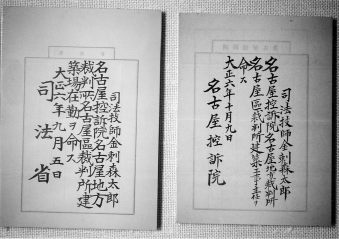 司法技師金刺森太郎
名古屋控訴院名古屋地方
裁判所名古屋區裁判所建
築場在勤ヲ命ス
大正六年九月五日
司法省
司法技師金刺森太郎
名古屋控訴院名古屋地方裁判所
名古屋區裁判所建築工事主任ヲ
命ス
大正六年十月九日
名古屋控訴院